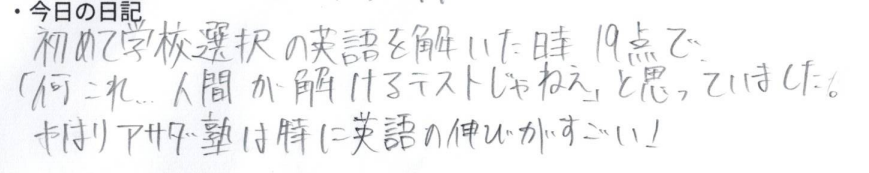 ・今日の日記
初めて学校選択の英語を解いた時 19点で、
「何これ… 人間が解けるテストじゃねえ」と思っていました。
やはりアサダ塾は特に英語の伸びがすごい!